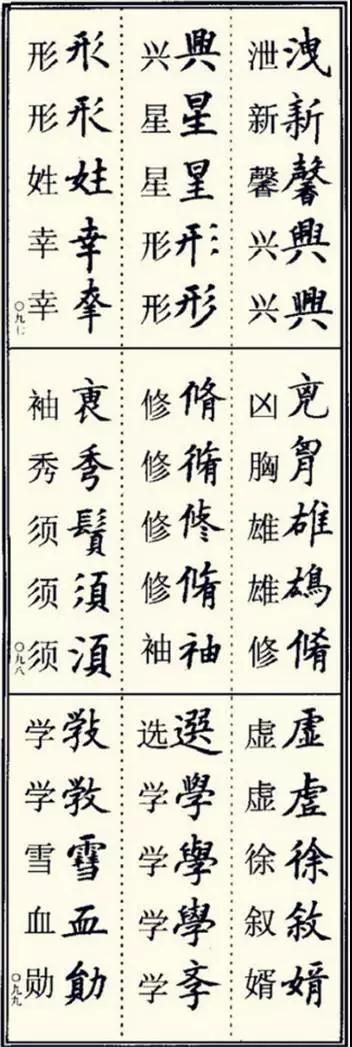 泄洩
新新
馨馨
兴興
兴興
兴興
星星
星
形形
形形
形形
形形
姓姓
幸幸
幸
〇九七
凶兇
胸胷
雄雄
雄
修脩
修脩
修脩
修修
修脩
袖袖
袖
秀秀
须鬚
须須
须湏
〇九八
虚虛
虚虗
徐徐
叙敘
婿婿
选選
学學
学學
学學
学斈
学
学
雪雪
血血
勋勛
〇九九